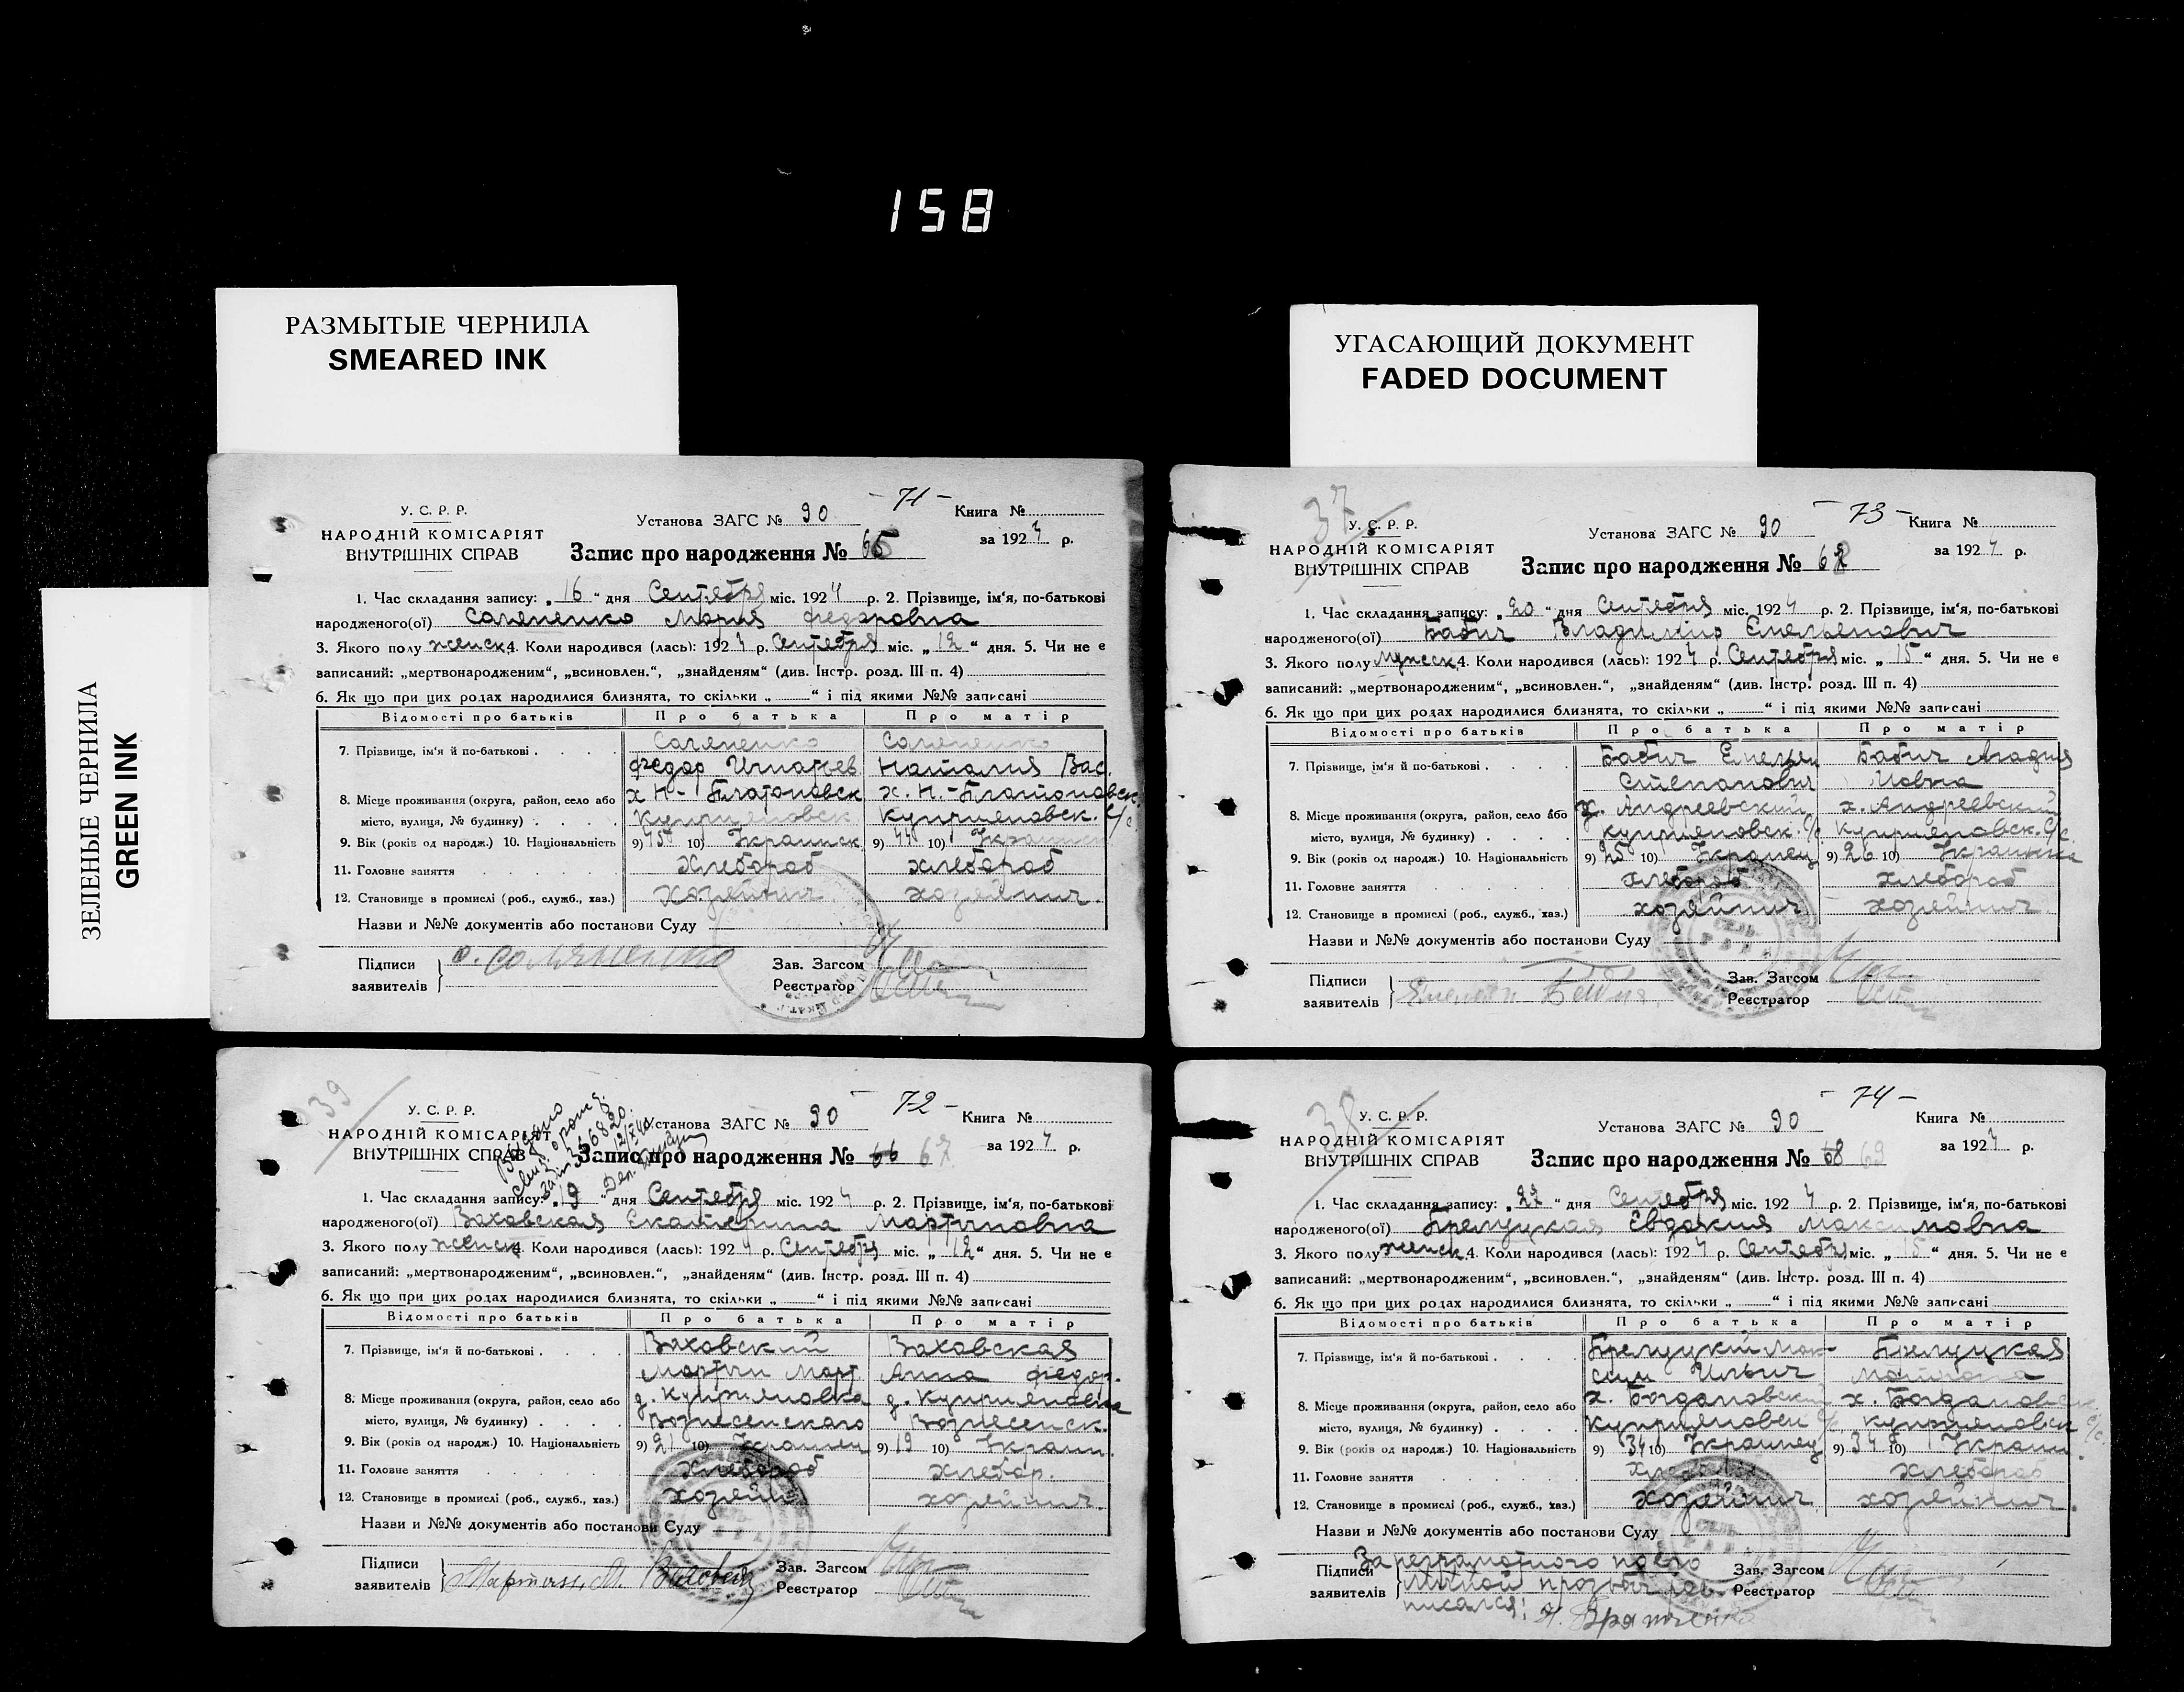 158
РАЗМЫТЫЕ ЧЕРНИЛА
SMEARED INK
УГАСАЮЩИЙ ДОКУМЕНТ
FADED DOCUMENT
ЗЕЛЕНЫЕ ЧЕРНИЛА
GREEN INK
- 71 -
У. С. Р. Р.
НАРОДНІЙ КОМІСАРІЯТ
ВНУТРІШНІХ СПРАВ
Установа ЗАГС № 90
Книга №
за 1924 р.
Запис про народження № 65
1. Час складання запису: „16“ дня Сентября міс. 1924 р. 2. Прізвище, ім‘я, по-батькові
народженого(ої) Саляненко Мария Федоровна
3. Якого полу женск. 4. Коли народився (лась): 1924 р. Сентября міс. „12“ дня. 5. Чи не є
записаний: „мертвонародженим“, „всиновлен.“, „знайденям“ (див. Інстр. розд. III п. 4)
6. Як що при цих родах народилися близнята, то скільки „ “ і під якими №№ записані
Відомості про батьків Про батька Про матір
7. Прізвище, ім‘я й по-батькові Саляненко Саляненко
Федор Игнатьев Наталия Вас.
8. Місце проживання (округа, район, село або х Н-Платоновск х. Н.-Платоновск.
місто, вулиця, № будинку) Куприяновск Куприяновск. С/с.
9. Вік (років од народж.) 10. Національність 9) 45 10) Украинск 9) 44 10)
11. Головне заняття Хлебороб хлебороб
12. Становище в промислі (роб., служб., хаз.) Хозяйнич. хозяйнич.
Назви и №№ документів або постанови Суду
Підписи
заявителів
Зав. Загсом
Реєстратор
- 73 -
37
У. С. Р. Р.
НАРОДНІЙ КОМІСАРІЯТ
ВНУТРІШНІХ СПРАВ
Установа ЗАГС № 90
Книга №
за 1924 р.
Запис про народження № 68
1. Час складання запису: „20“ дня Сентября міс. 1924 р. 2. Прізвище, ім‘я, по-батькові
народженого(ої) Бабич Владимир Емельянович
3. Якого полу Мужск. 4. Коли народився (лась): 1924 р. Сентября міс. „15“ дня. 5. Чи не є
записаний: „мертвонародженим“, „всиновлен.“, „знайденям“ (див. Інстр. розд. III п. 4)
6. Як що при цих родах народилися близнята, то скільки „ “ і під якими №№ записані
Відомості про батьків Про батька Про матір
7. Прізвище, ім‘я й по-батькові Бабич Емельян Бабич
Степанович
8. Місце проживання (округа, район, село або х. Андреевский х. Андреевский
місто, вулиця, № будинку) Куприяновск. С/с Куприяновск. С/с.
9. Вік (років од народж.) 10. Національність 9) 25 10) Украинец 9) 26 10) Украинка
11. Головне заняття хлебороб хлебороб
12. Становище в промислі (роб., служб., хаз.) хозяйнич хозяйнич.
Назви и №№ документів або постанови Суду
Підписи
заявителів
Зав. Загсом
Реєстратор
- 72 -
39
У. С. Р. Р.
НАРОДНІЙ КОМІСАРІЯТ
ВНУТРІШНІХ СПРАВ
Установа ЗАГС № 90
Книга №
за 1924 р.
Запис про народження № 66 67
1. Час складання запису: „19“ дня Сентября міс. 1924 р. 2. Прізвище, ім‘я, по-батькові
народженого(ої) Ваховская Екатерина Мартыновна
3. Якого полу женск. 4. Коли народився (лась): 1924 р. Сентября міс. „12“ дня. 5. Чи не є
записаний: „мертвонародженим“, „всиновлен.“, „знайденям“ (див. Інстр. розд. III п. 4)
6. Як що при цих родах народилися близнята, то скільки „ “ і під якими №№ записані
Відомості про батьків Про батька Про матір
7. Прізвище, ім‘я й по-батькові Ваховский Ваховская
Мартын Март. Анна Федор.
8. Місце проживання (округа, район, село або д. Куприяновка д. Куприяновка
місто, вулиця, № будинку) Вознесенскаго Вознесенск.
9. Вік (років од народж.) 10. Національність 9) 21 10) Украинец 9) 19 10) Украин.
11. Головне заняття Хлебороб хлебор.
12. Становище в промислі (роб., служб., хаз.) хозяйн хозяйнич.
Назви и №№ документів або постанови Суду
Підписи
заявителів
Зав. Загсом
Реєстратор
- 74 -
38
У. С. Р. Р.
НАРОДНІЙ КОМІСАРІЯТ
ВНУТРІШНІХ СПРАВ
Установа ЗАГС № 90
Книга №
за 1924 р.
Запис про народження № 68 69
1. Час складання запису: „22“ дня Сентября міс. 1924 р. 2. Прізвище, ім‘я, по-батькові
народженого(ої) Брелуцкая Євдокия Максимовна
3. Якого полу женск. 4. Коли народився (лась): 1924 р. Сентября міс. „ “ дня. 5. Чи не є
записаний: „мертвонародженим“, „всиновлен.“, „знайденям“ (див. Інстр. розд. III п. 4)
6. Як що при цих родах народилися близнята, то скільки „ “ і під якими №№ записані
Відомості про батьків Про батька Про матір
7. Прізвище, ім‘я й по-батькові Брелуцкий Мак- Брелуцкая
сим Ильич
8. Місце проживання (округа, район, село або х. Богдановский х. Богдановск
місто, вулиця, № будинку) Куприяновск С/с Куприяновск С/с.
9. Вік (років од народж.) 10. Національність 9) 34 10) Украинец 9) 34 10) Украин.
11. Головне заняття Хлебороб хлебороб
12. Становище в промислі (роб., служб., хаз.) хозяйнич хозяйнич.
Назви и №№ документів або постанови Суду
Підписи
заявителів
Зав. Загсом
Реєстратор